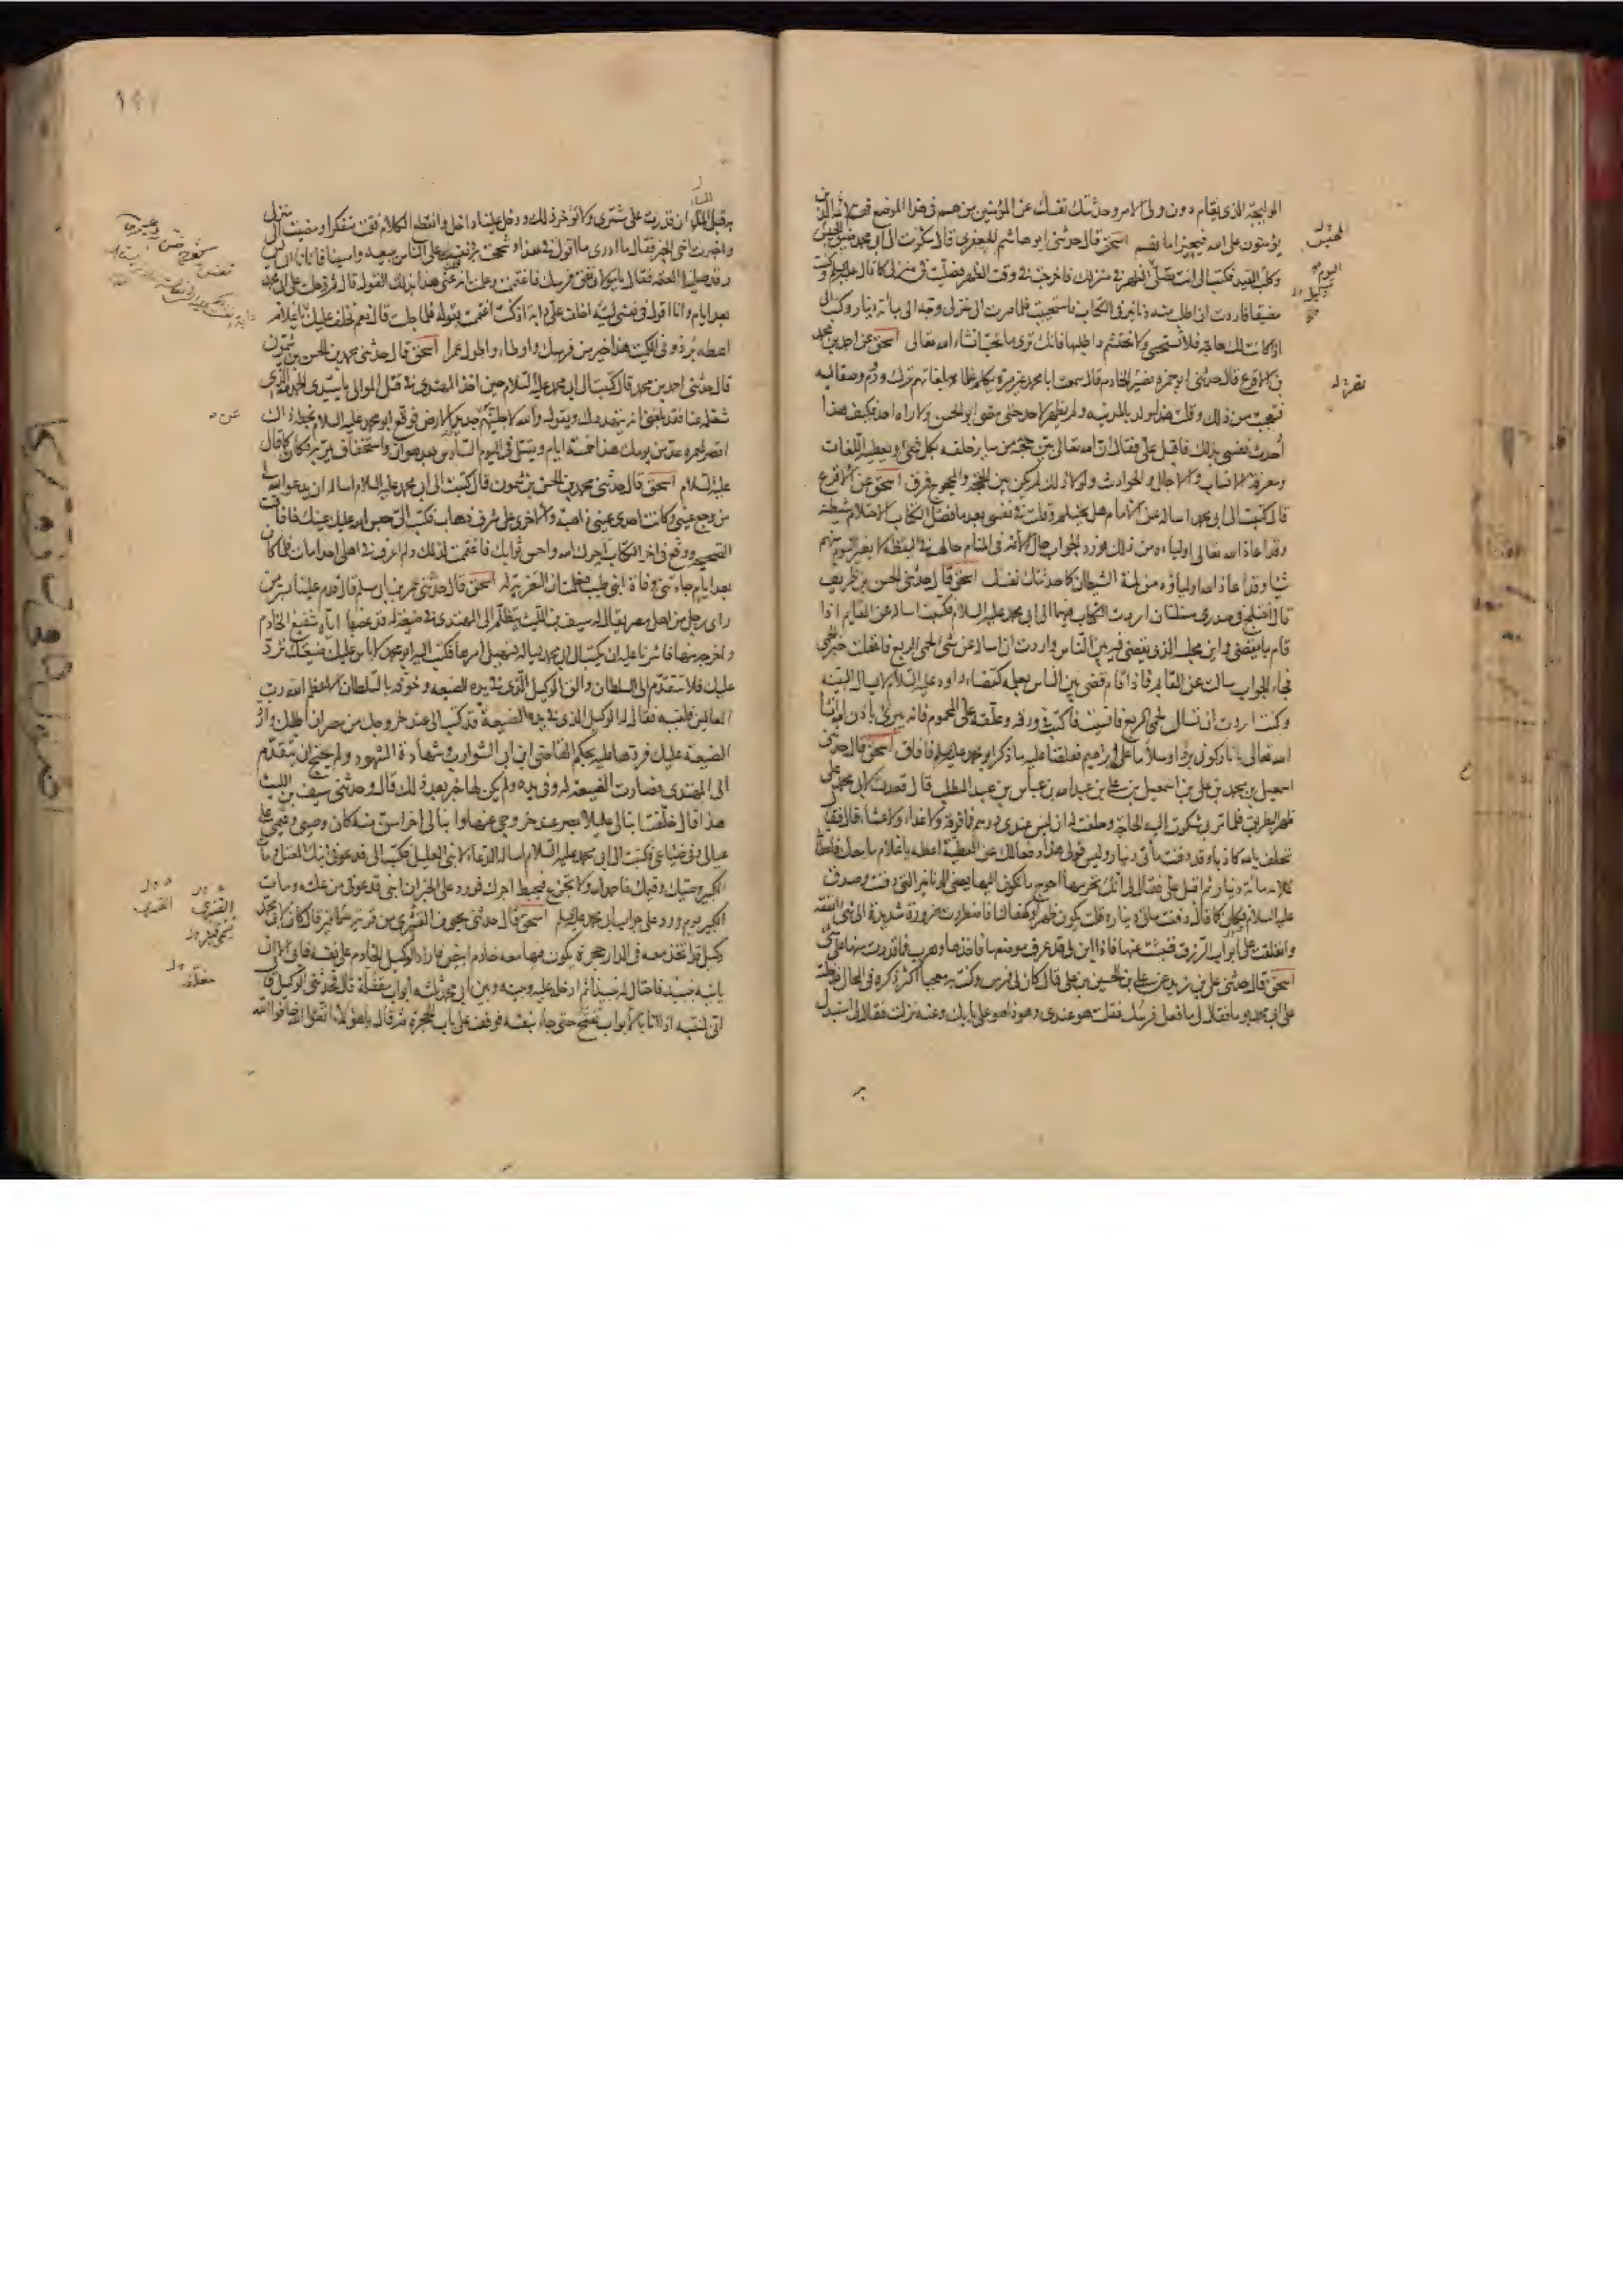 يؤمنون على الله فيجيز امانهم اسحق قال حدثنى ابو هاشم الجعفرى قال شكوت الى ابى محمد ضيق الحبس
وكلب القيد فكتب الى انت تصلى الظهر فى منزلك فاخرجت فى وقت الظهر فصليت فى منزلى كما قال عليه السلم وكنت
مضيقا فاردت ان اطلب منه دنانير فى الكتاب فاستحييت فلما صرت الى منزلى وجه الى بمائة دينار وكتب الى
اذا كانت لك حاجة فلا تستحى ولا تحتشم واطلبها فانك ترى ما تحب انشاء الله تعالى اسحق عن احمد بن محمد
بن الاقرع قال حدثنى ابو حمزة نصير الخادم قال سمعت ابا محمد غير مرة يكلم غلمانه بلغاتهم ترك وروم وصقالبه
فتعجبت من ذلك وقلت هذا ولد بالمدينه ولم يظهر لاحد حتى مضى ابو الحسن ولا راه احد فكيف هذا
احدث نفسى بذلك فاقبل على فقال ان الله تعالى بين حجته من ساير خلقه بكل شئ ويعطيه اللغات
ومعرفة الانساب والاجال والحوادث ولولا ذلك لم يكن بين الحجة والمحجوج فرق اسحق عن الاقرع
قال كتبت الى ابى محمد اساله عن الامام هل يحتلم وقلت فى نفسى بعد ما فصل الكتاب الاحتلام شيطنة
وقد اعاذ الله تعالى اولياءه من ذلك فورد الجواب حال الائمة فى المنام حالهم فى اليقظة لا يغير النوم منهم
شيئا وقد اعاذ الله اولياءه من لمة الشيطان كما حدثتك نفسك اسحق قال حدثنى الحسن بن ظريف
قال اختلج فى صدرى مسئلتان اردت الكتاب فيهما الى ابى محمد عليه السلام فكتبت اساله عن القايم اذا
قام بما يقضى واين مجلسه الذى يقضى فيه بين الناس واردت ان اساله عن شئ لحمى الربع فاغفلت خبر الحمى
فجاء الجواب سالت عن القايم فاذا قام قضى بين الناس بعلمه كقضاء داود عليه السلام لا يسال البينه
وكنت اردت ان تسال لحمى الربع فانسيت فاكتب فى ورقة وعلقه على المحموم فانه يبرئ باذن الله انشا
الله تعالى يا نار كونى بردا وسلاما على ابراهيم فعلقنا عليه ما ذكر ابو محمد عليه السلم فافاق اسحق قال حدثنى
اسمعيل بن محمد بن على بن اسمعيل بن على بن عبد الله بن عباس بن عبد المطلب قال قعدت لابى محمد على
ظهر الطريق فلما مر بى شكوت اليه الحاجة وحلفت له ان ليس عندى درهم فما فوقه ولا غداء ولا عشاء قال فقال
تحلف بالله كاذبا وقد دفنت مأتى دينار وليس قولى هذا دفعا لك عن العطية اعطه يا غلام ما معك فاعطانى
غلامه مائة دينار ثم اقبل على فقال لى انك تحرمها احوج ما تكون اليها يعنى الدنانير التى دفنت وصدق
عليه السلام وكان كما قال دفنت مائتى دينار وقلت يكون ظهرا وكهفا لنا فاضطررت ضرورة شديدة الى شئ انفقه
وانغلقت على ابواب الرزق فنبشت عنها فاذا ابن لى قد عرف موضعها فاخذها وهرب فما قدرت منها على شئ
اسحق قال حدثنى على بن زيد بن على بن الحسين بن على قال كان لى فرس وكنت به معجبا اكثر ذكره فى المحال فدخلت
على ابى محمد يوما فقال لى ما فعل فرسك فقلت هو عندى وهوذا هو على بابك وعنه نزلت فقال لى استبدل
به قبل المساء ان قدرت على مشترى ولا تؤخر ذلك ودخل علينا داخل وانقطع الكلام فقمت متفكرا ومضيت الى منزلى
بعد ايام وانا اقول فى نفسى ليته اخلف على دابة اذ كنت اغتممت بقوله فلما جلست قال نعم نخلف عليك يا غلام
اعطه برذونى الكميت هذا خير من فرسك واوطاء واطول عمرا اسحق قال حدثنى محمد بن الحسن بن شمون
قال حدثنى احمد بن محمد قال كتبت الى ابى محمد عليه السلام حين اخذ المهتدى فى قتل الموالى يا سيدى الحمد لله الذى
شغله عنا فقد بلغنى انه يتهددك ويقول والله لاجلينهم عن جديد الارض فوقع ابو محمد عليه السلام بخطه ذاك
اقصر لعمره عد من يومك هذا خمسة ايام ويقتل فى اليوم السادس بعد هوان واستخفاف يمر به فكان كما قال
عليه السلام اسحق قال حدثنى محمد بن الحسن بن شمون قال كتبت الى ابى محمد عليه السلام اساله ان يدعو الله لى
من وجع عينى وكانت احدى عينى ذاهبة والاخرى على شرف ذهاب فكتب الى حبس الله عليك عينك فافاقت
الصحيحه ووقع فى اخر الكتاب اجرك الله واحسن ثوابك فاغتممت لذلك ولم اعرف فى اهلى احدا مات فلما كان
بعد ايام جاءتنى وفاة ابنى طيب فعلمت ان التعزية له اسحق قال حدثنى عمر بن ابى مسلم قال قدم علينا بسر من
راى رجل من اهل مصر يقال له سيف بن الليث يتظلم الى المهتدى فى ضيعة له قد غصبها اياه شفيع الخادم
واخرجه منها فاشرنا عليه ان يكتب الى ابى محمد يساله تسهيل امرها فكتب اليه ابو محمد لا باس عليك ضيعتك ترد
عليك فلا تتقدم الى السلطان والق الوكيل الذى فى يده الضيعه وخوفه بالسلطان الاعظم الله رب
العالمين فلقيه فقال له الوكيل الذى فى يده الضيعة قد كتب الى عند خروجك من مصر ان اطلبك وارد
الضيعة عليك فردها عليه بحكم القاضى ابن ابى الشوارب وشهادة الشهود ولم يحتج ان يتقدم
الى المهتدى فصارت الضيعة له وفى يده ولم يكن لها خبر بعد ذلك قال وحدثنى سيف بن الليث
هذا قال خلفت ابنا لى عليلا بمصر عند خروجى عنها وابنا لى اخر اسن منه كان وصيى وقيمى على
عيالى وفى ضياعى فكتبت الى ابى محمد عليه السلام اساله الدعاء لابنى العليل فكتب الى قد عوفى ابنك المعتل ومات
الكبير وصيك وقيمك فاحمد الله ولا تجزع فيحبط اجرك فورد على الخبر ان ابنى قد عوفى من علته ومات
الكبير يوم ورد على جواب ابى محمد عليه السلم اسحق قال حدثنى يحيى بن القشيرى من قرية تسمى قير قال كان لابى محمد
وكيل قد اتخذ معه فى الدار حجرة يكون فيها معه خادم ابيض فاراد الوكيل الخادم على نفسه فابى الا ان
ياتيه بنبيذ فاحتال له نبيذا ثم ادخله عليه وبينه وبين ابى محمد ثلثة ابواب مقفلة قال فحدثنى الوكيل قال
انى لمنتبه اذ انا بالابواب تفتح حتى جاء بنفسه فوقف على باب الحجرة ثم قال يا هؤلاء اتقوا الله خافوا الله